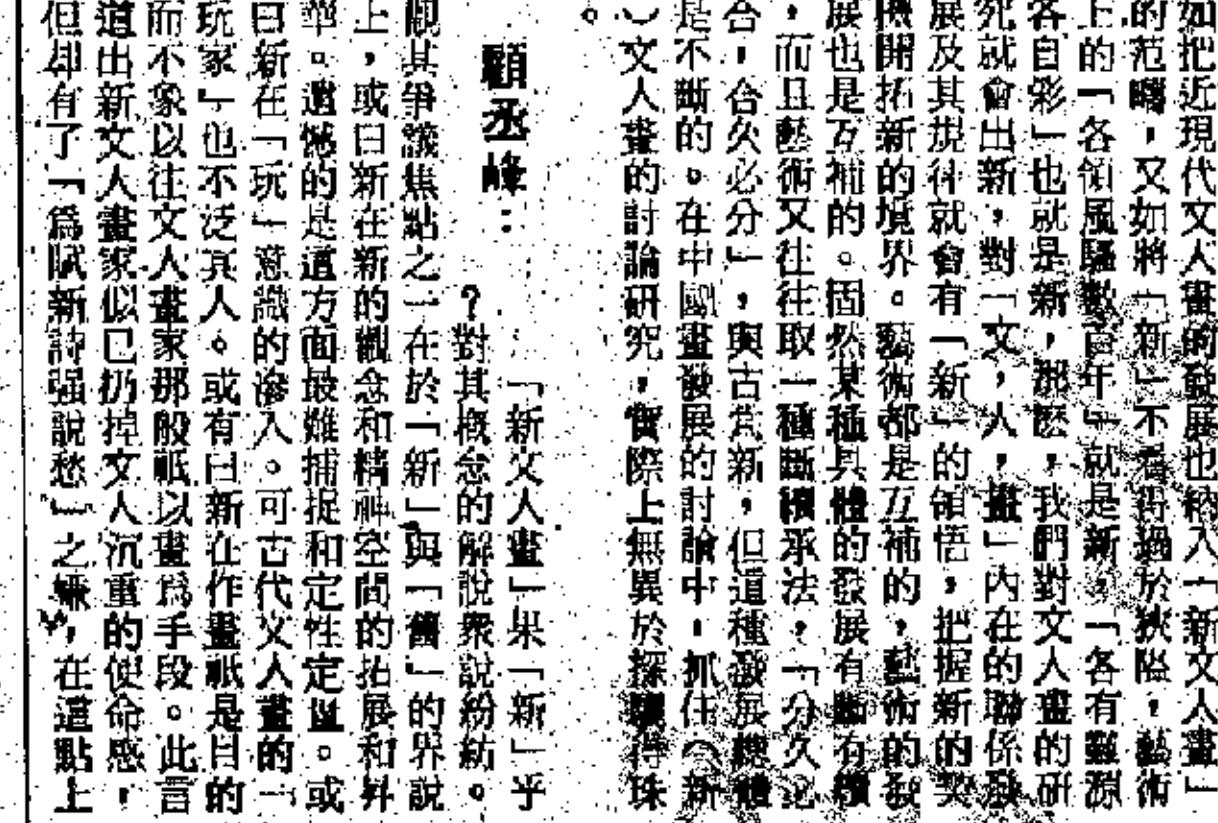 如把近現代文人畫的發展也納入「新文人畫」
的范疇，又如將「新」不看得過於狹隘，藝術
上的「各領風騷數百年」就是新，「各有淵源
各自彩」也就是新，那麽，我們對文人畫的研
死就會出新，對「文，人，畫」內在的聯係發
展及其規律就會有「新」的領悟，把握新的契
機開拓新的境界。藝術都是互補的，藝術的發
展也是互補的。固然某種具體的發展有斷有續
，而且藝術又往往取一種斷續承法，「分久必
合，合久必分」，與古為新，但這種發展總體
是不斷的。在中國畫發展的討論中，抓住（新
）文人畫的討論研究，實際上無異於探驪得珠
。
顧丞峰：
「新文人畫」果「新」乎
？對其概念的解說衆說紛紜。
觀其爭議焦點之一在於「新」與「舊」的界說
上，或曰新在新的觀念和精神空間的拓展和昇
華。遺憾的是這方面最難捕捉和定性定量。或
曰新在「玩」意識的滲入。可古代文人畫的「
玩家」也不泛其人。或有曰新在作畫祇是目的
而不象以往文人畫家那般祇以畫爲手段。此言
道出新文人畫家似已扔掉文人沉重的使命感，
但却有了「爲賦新詩强說愁」之嫌，在這點上